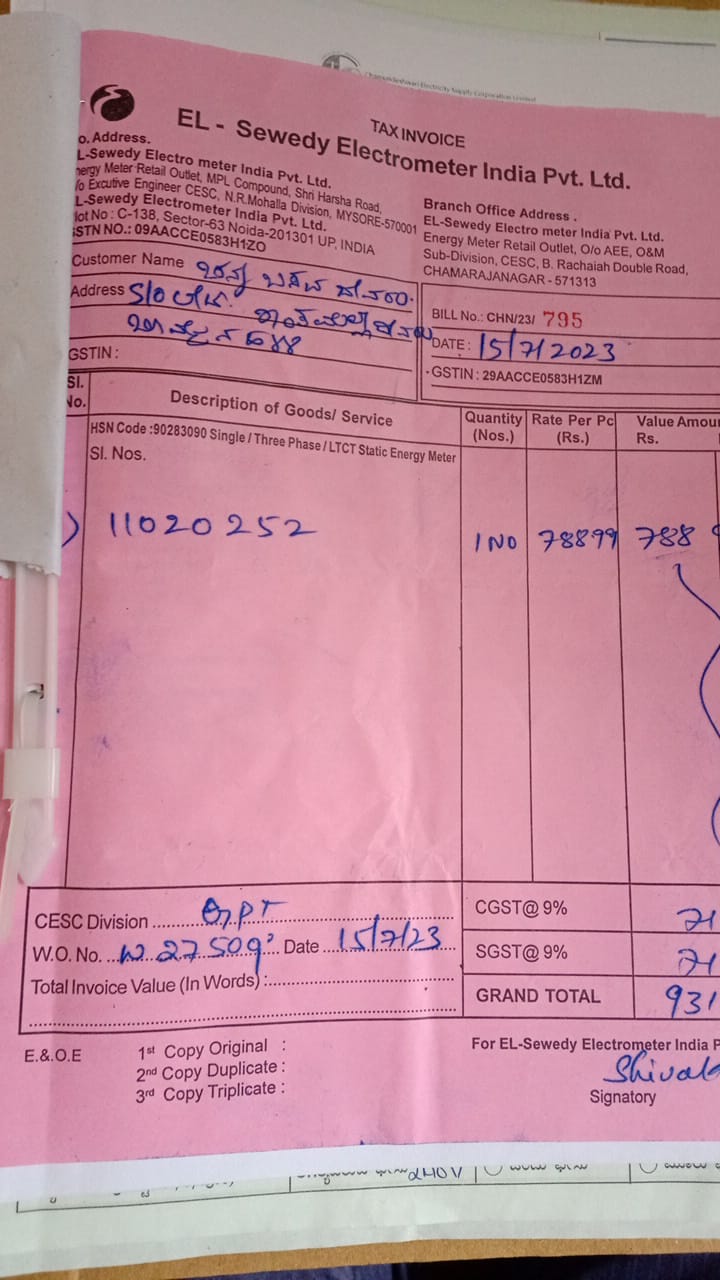 Chamundeshwari Electricity Supply Corporation Limited
TAX INVOICE
EL - Sewedy Electrometer India Pvt. Ltd.
o. Address.
L-Sewedy Electro meter India Pvt. Ltd.
nergy Meter Retail Outlet, MPL Compound, Shri Harsha Road,
/o Excutive Engineer CESC, N.R.Mohalla Division, MYSORE-570001
L-Sewedy Electrometer India Pvt. Ltd.
lot No : C-138, Sector-63 Noida-201301 UP, INDIA
GSTN NO.: 09AACCE0583H1ZO
Branch Office Address .
EL-Sewedy Electro meter India Pvt. Ltd.
Energy Meter Retail Outlet, O/o AEE, O&M
Sub-Division, CESC, B. Rachaiah Double Road,
CHAMARAJANAGAR - 571313
Customer Name
Address S/o
GSTIN :
BILL No.: CHN/23/ 795
DATE : 15/7/2023
GSTIN : 29AACCE0583H1ZM
Sl. No. Description of Goods/ Service Quantity (Nos.) Rate Per Pc (Rs.) Value Amou Rs.
HSN Code :90283090 Single / Three Phase / LTCT Static Energy Meter
Sl. Nos.
) 11020252 1 NO 78899 788
CESC Division
CGST@ 9% 71
W.O. No. W 27509 Date 15/7/23
SGST@ 9% 71
Total Invoice Value (In Words) :
GRAND TOTAL 931
E.&.O.E
1st Copy Original :
2nd Copy Duplicate :
3rd Copy Triplicate :
For EL-Sewedy Electrometer India P
Signatory